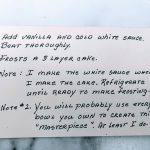 Add vanilla and cold white sauce.
Beat thoroughly.
Frosts a 3 layer cake.
Note: I make the white sauce when
I make the cake. Refrigerate
until ready to make frosting.
Note #2. You will probably use every
bowl you own to create this
"masterpiece". At least I do.